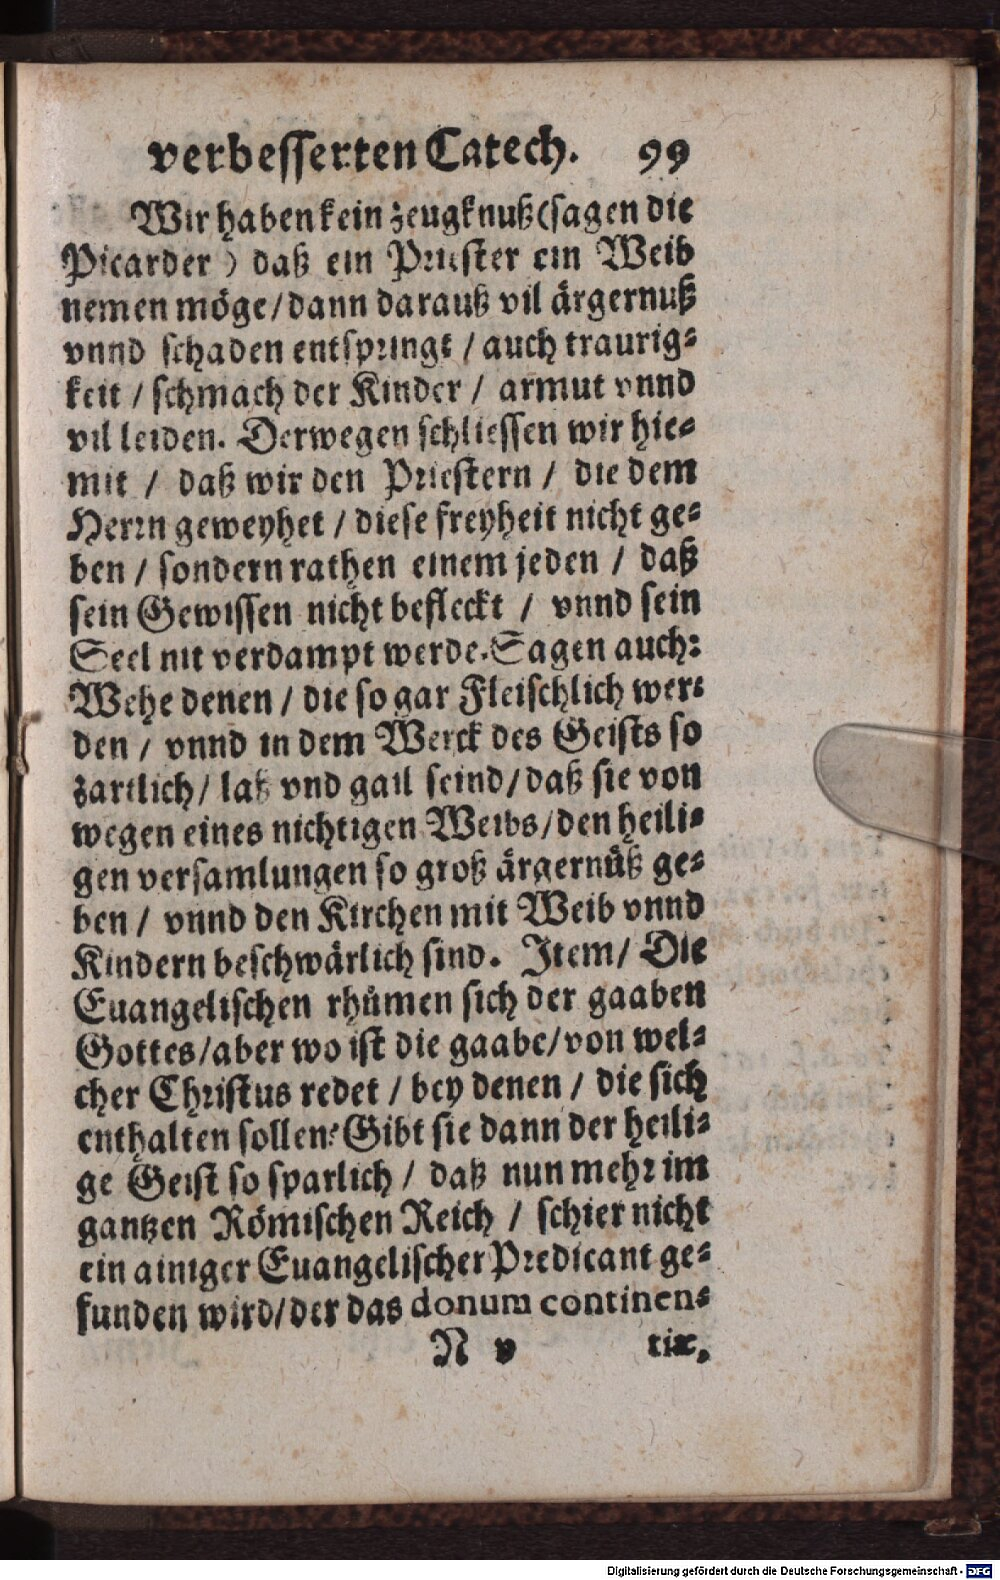 verbesserten Catech. 99
Wir haben kein zeugknuß (sagen die
Picarder) daß ein Priester ein Weib
nemen möge/dann darauß vil ärgernuß
vnnd schaden entspringt / auch traurig-
keit / schmach der Kinder / armut vnnd
vil leiden. Derwegen schliessen wir hie-
mit / daß wir den Priestern / die dem
Herrn geweyhet / diese freyheit nicht ge-
ben / sondern rathen einem jeden / daß
sein Gewissen nicht befleckt / vnnd sein
Seel nit verdampt werde. Sagen auch:
Wehe denen / die so gar Fleischlich wer-
den / vnnd in dem Werck des Geists so
zartlich/ laß vnd gail seind/ daß sie von
wegen eines nichtigen Weibs/den heili-
gen versamlungen so groß ärgernüß ge-
ben / vnnd den Kirchen mit Weib vnnd
Kindern beschwärlich sind. Item/ Die
Euangelischen rhümen sich der gaaben
Gottes/aber wo ist die gaabe/von wel-
cher Christus redet / bey denen / die sich
enthalten sollen? Gibt sie dann der heili-
ge Geist so sparlich / daß nun mehr im
gantzen Römischen Reich / schier nicht
ein ainiger Euangelischer Predicant ge-
funden wird/der das donum continen-
N v tiæ,
Digitalisierung gefördert durch die Deutsche Forschungsgemeinschaft - DFG